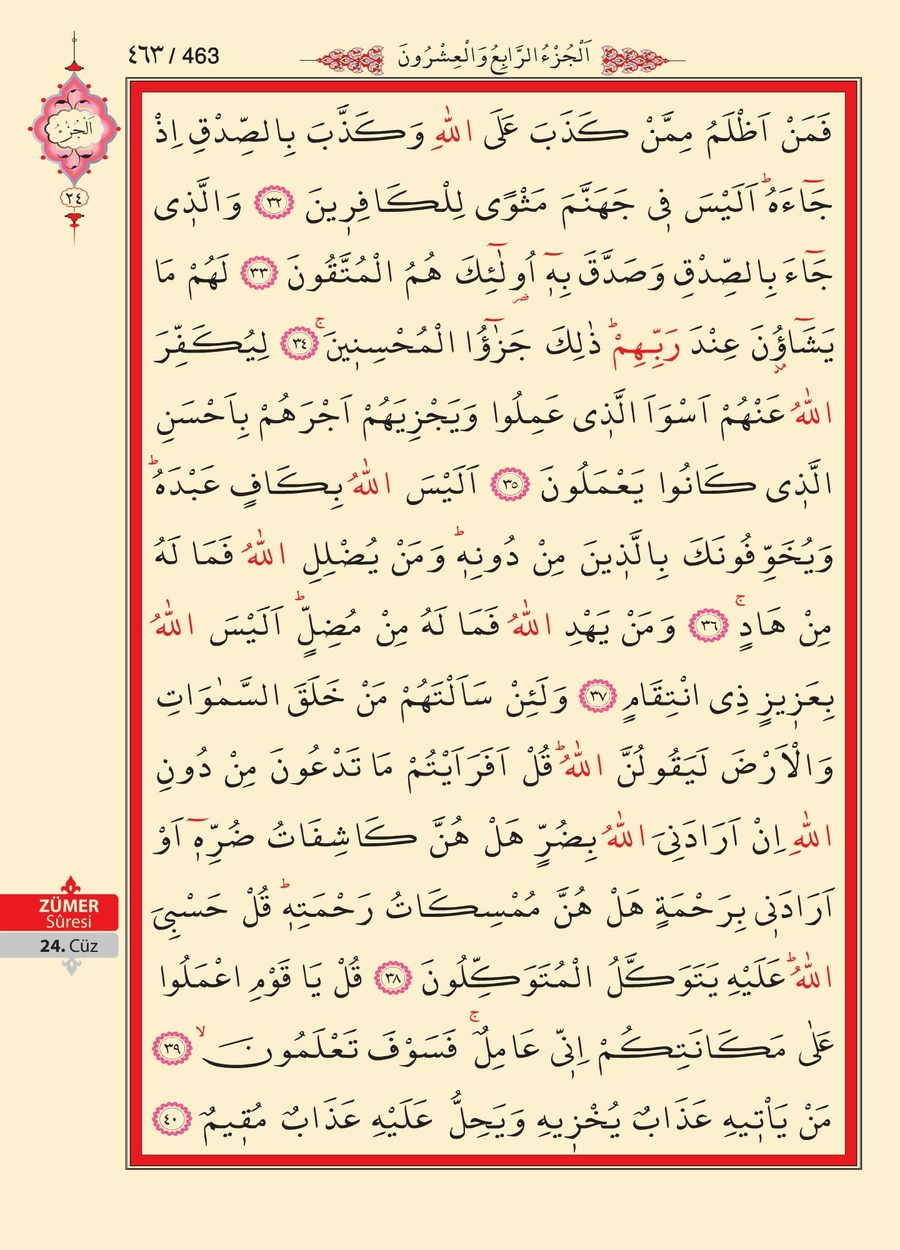 ٤٦٣ / 463
اَلْجُزْءُ الرَّابِعُ وَالْعِشْرُونَ
اَلْجُزْءُ
٢٤
فَمَنْ اَظْلَمُ مِمَّنْ كَذَبَ عَلَى اللّٰهِ وَكَذَّبَ بِالصِّدْقِ اِذْ
جَٓاءَهُۜ اَلَيْسَ ف۪ي جَهَنَّمَ مَثْوًى لِلْكَافِر۪ينَ ﴿٣٢﴾ وَالَّذ۪ي
جَٓاءَ بِالصِّدْقِ وَصَدَّقَ بِه۪ٓ اُو۬لٰٓئِكَ هُمُ الْمُتَّقُونَ ﴿٣٣﴾ لَهُمْ مَا
يَشَٓاؤُ۫نَ عِنْدَ رَبِّهِمْۜ ذٰلِكَ جَزٰٓؤُا الْمُحْسِن۪ينَۚ ﴿٣٤﴾ لِيُكَفِّرَ
اللّٰهُ عَنْهُمْ اَسْوَاَ الَّذ۪ي عَمِلُوا وَيَجْزِيَهُمْ اَجْرَهُمْ بِاَحْسَنِ
الَّذ۪ي كَانُوا يَعْمَلُونَ ﴿٣٥﴾ اَلَيْسَ اللّٰهُ بِكَافٍ عَبْدَهُۜ
وَيُخَوِّفُونَكَ بِالَّذ۪ينَ مِنْ دُونِه۪ۜ وَمَنْ يُضْلِلِ اللّٰهُ فَمَا لَهُ
مِنْ هَادٍۚ ﴿٣٦﴾ وَمَنْ يَهْدِ اللّٰهُ فَمَا لَهُ مِنْ مُضِلٍّۜ اَلَيْسَ اللّٰهُ
بِعَز۪يزٍ ذِي انْتِقَامٍ ﴿٣٧﴾ وَلَئِنْ سَاَلْتَهُمْ مَنْ خَلَقَ السَّمٰوَاتِ
وَالْاَرْضَ لَيَقُولُنَّ اللّٰهُۜ قُلْ اَفَرَاَيْتُمْ مَا تَدْعُونَ مِنْ دُونِ
اللّٰهِ اِنْ اَرَادَنِيَ اللّٰهُ بِضُرٍّ هَلْ هُنَّ كَاشِفَاتُ ضُرِّه۪ٓ اَوْ
اَرَادَن۪ي بِرَحْمَةٍ هَلْ هُنَّ مُمْسِكَاتُ رَحْمَتِه۪ۜ قُلْ حَسْبِيَ
اللّٰهُۜ عَلَيْهِ يَتَوَكَّلُ الْمُتَوَكِّلُونَ ﴿٣٨﴾ قُلْ يَا قَوْمِ اعْمَلُوا
عَلٰى مَكَانَتِكُمْ اِنّ۪ي عَامِلٌۚ فَسَوْفَ تَعْلَمُونَۙ ﴿٣٩﴾
مَنْ يَأْت۪يهِ عَذَابٌ يُخْز۪يهِ وَيَحِلُّ عَلَيْهِ عَذَابٌ مُق۪يمٌ ﴿٤٠﴾
ZÜMER
Sûresi
24. Cüz